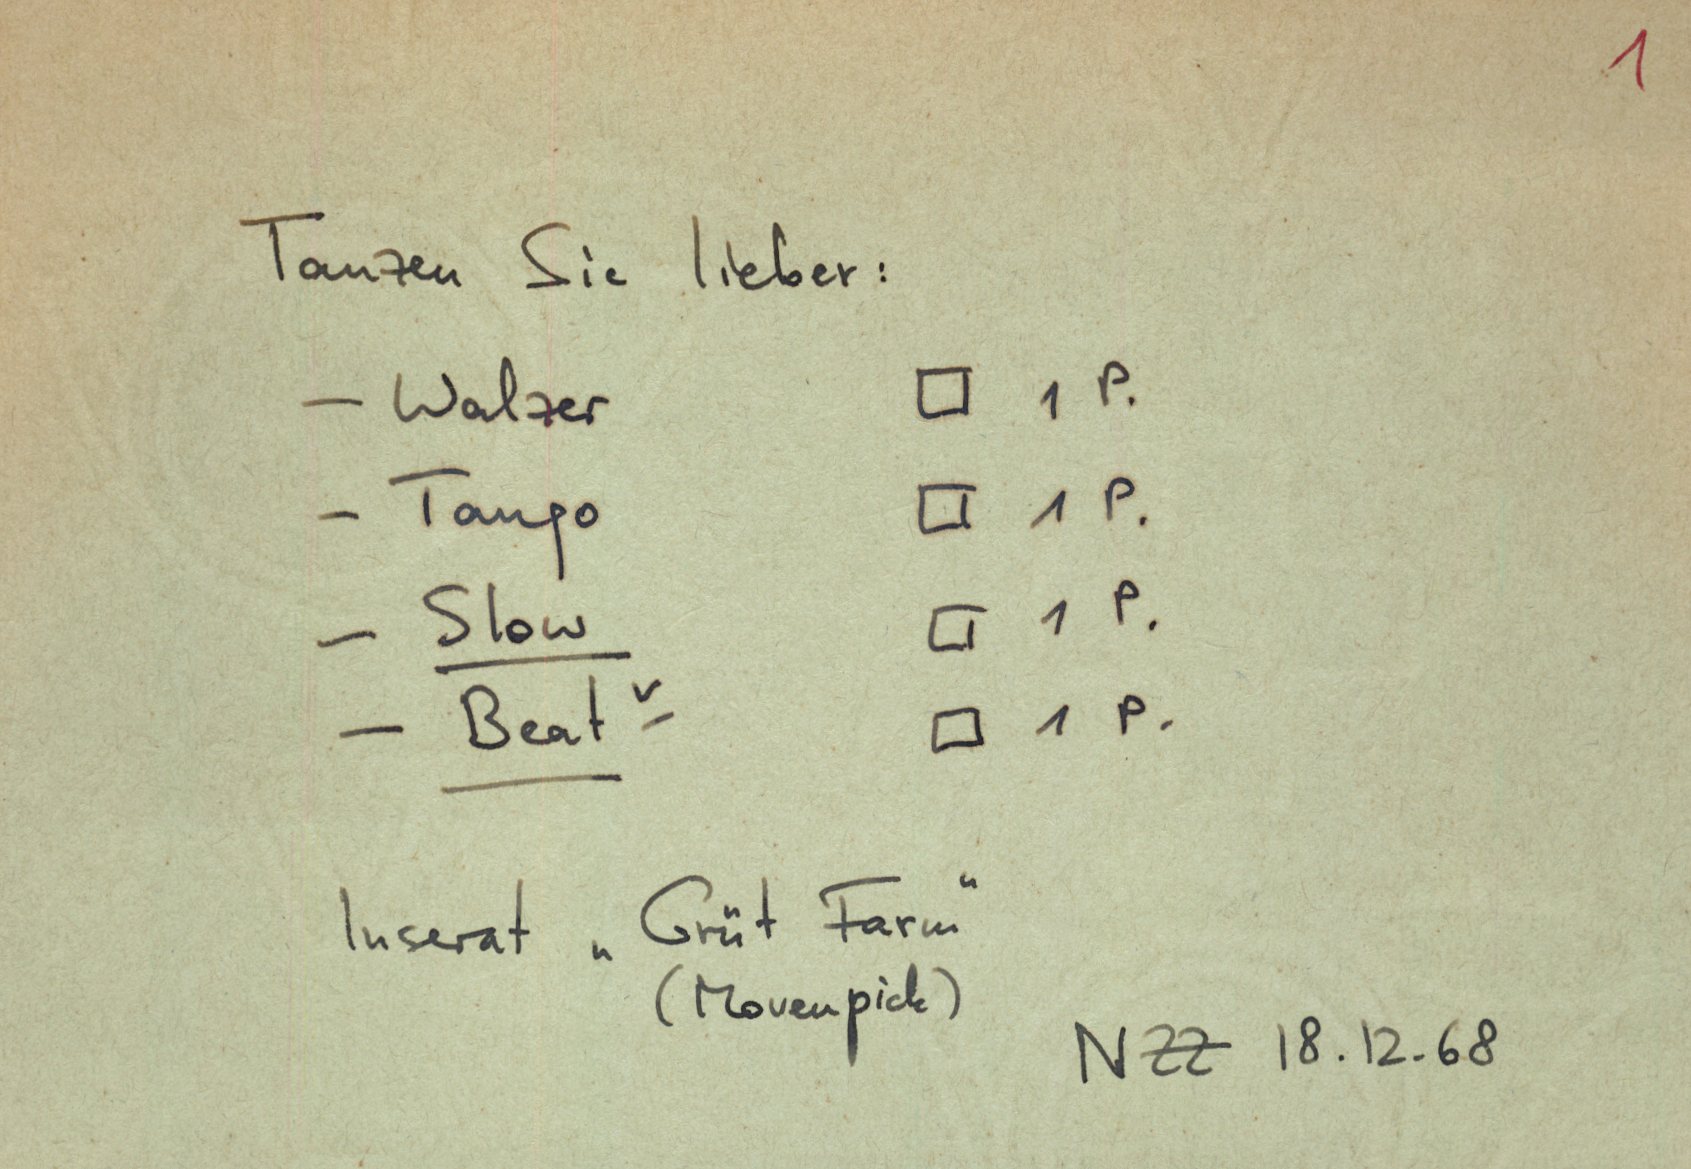 1
Tanzen Sie lieber:
– Walzer □ 1 P.
– Tango □ 1 P.
– Slow □ 1 P.
– Beat □ 1 P.
Inserat „Grüt Farm"
(Movenpick)
NZZ 18.12.68